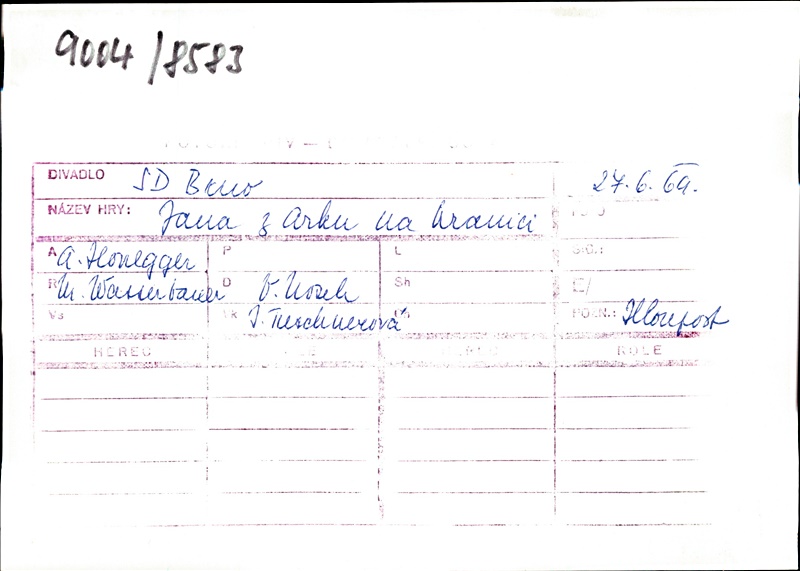 9004/8583
DIVADLO SD Brno 27.6.69.
NÁZEV HRY: Jana z Arku na hranici
A A. Honegger P L
R M. Wasserbauer D V. Nosek Sh
Vs J. Tuschnerová POZN.:
HEREC ROLE